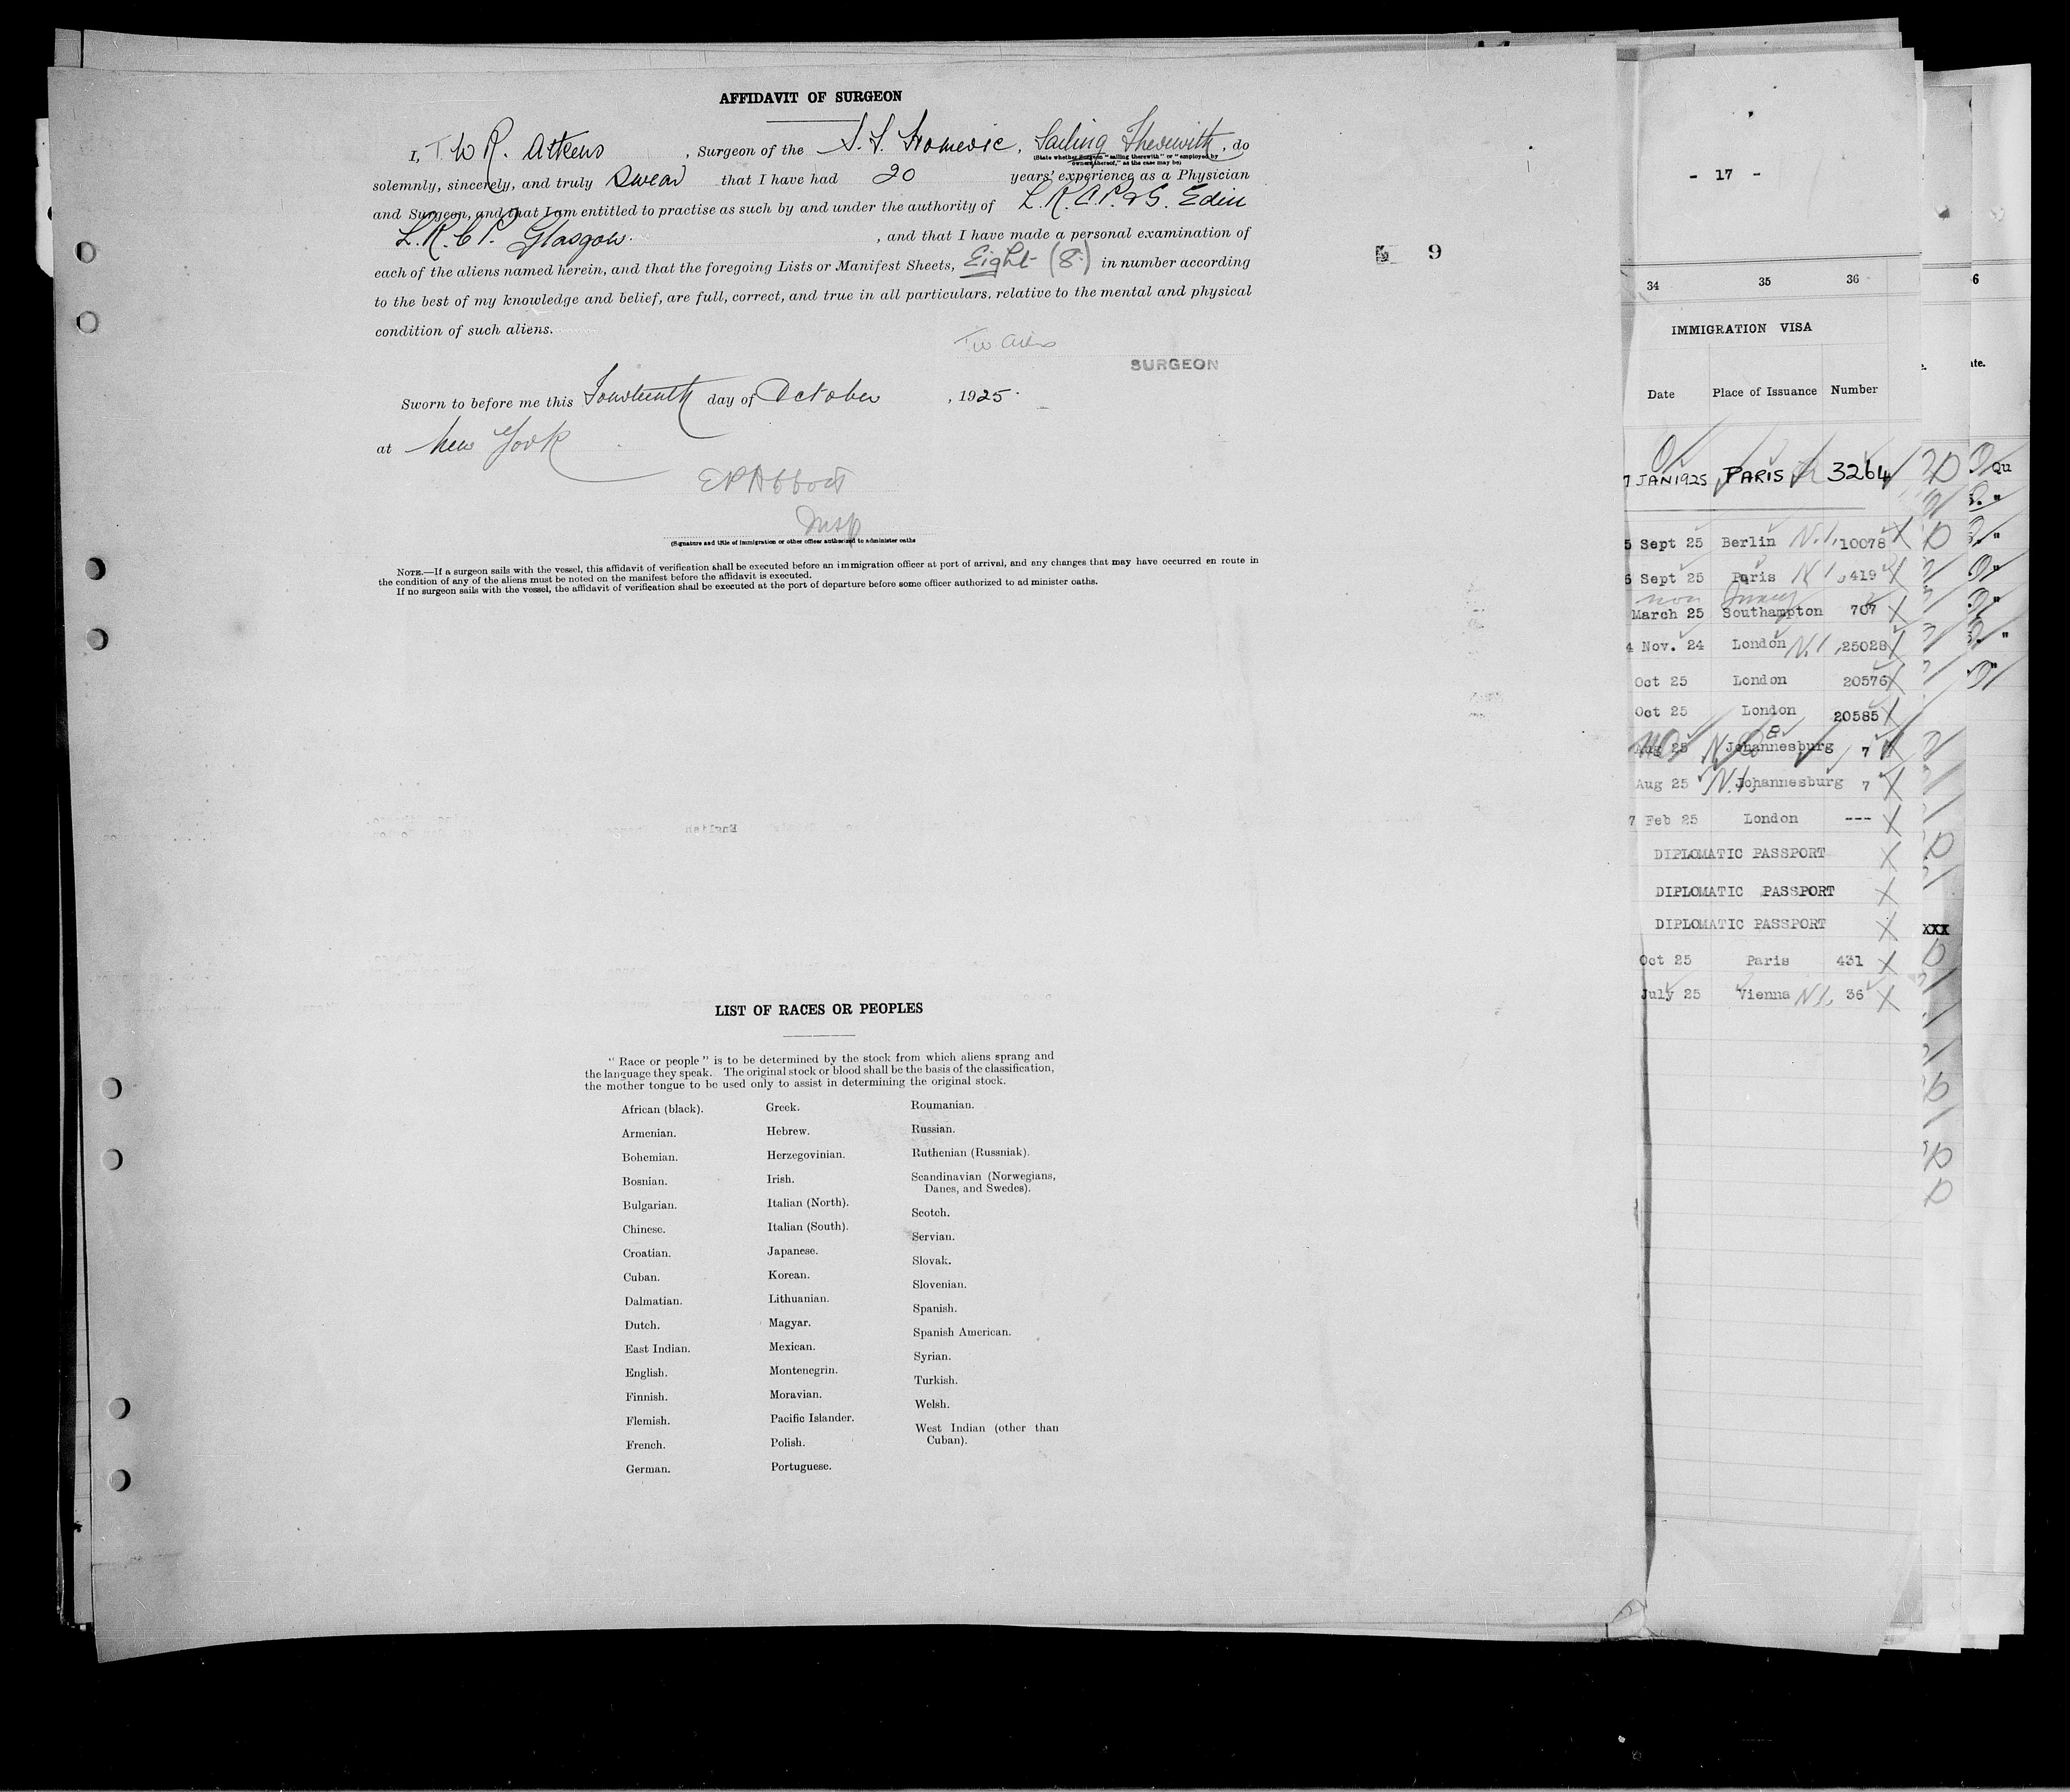 AFFIDAVIT OF SURGEON
I, T W R. Aitkens , Surgeon of the S. S. Homeric , Sailing Therewith , do
(State whether Surgeon "sailing therewith" or "employed by
owners thereof," as the case may be)
solemnly, sincerely, and truly swear that I have had 20 years' experience as a Physician
and Surgeon, and that I am entitled to practise as such by and under the authority of L. R. C. P. & S. Edin
L. R. C P. Glasgow. , and that I have made a personal examination of
each of the aliens named herein, and that the foregoing Lists or Manifest Sheets, Eight (8) in number according
to the best of my knowledge and belief, are full, correct, and true in all particulars. relative to the mental and physical
condition of such aliens.
SURGEON
Sworn to before me this Fourteenth day of October , 1925.
at New York
E P Abbott
Insp
(Signature and title of immigration or other officer authorized to administer oaths
NOTE.—If a surgeon sails with the vessel, this affidavit of verification shall be executed before an immigration officer at port of arrival, and any changes that may have occurred en route in
the condition of any of the aliens must be noted on the manifest before the affidavit is executed.
If no surgeon sails with the vessel, the affidavit of verification shall be executed at the port of departure before some officer authorized to ad minister oaths.
9
LIST OF RACES OR PEOPLES
"Race or people" is to be determined by the stock from which aliens sprang and
the language they speak. The original stock or blood shall be the basis of the classification,
the mother tongue to be used only to assist in determining the original stock.
African (black).
Armenian.
Bohemian.
Bosnian.
Bulgarian.
Chinese.
Croatian.
Cuban.
Dalmatian.
Dutch.
East Indian.
English.
Finnish.
Flemish.
French.
German.
Greek.
Hebrew.
Herzegovinian.
Irish.
Italian (North).
Italian (South).
Japanese.
Korean.
Lithuanian.
Magyar.
Mexican.
Montenegrin.
Moravian.
Pacific Islander.
Polish.
Portuguese.
Roumanian.
Russian.
Ruthenian (Russniak).
Scandinavian (Norwegians,
Danes, and Swedes).
Scotch.
Servian.
Slovak.
Slovenian.
Spanish.
Spanish American.
Syrian.
Turkish.
Welsh.
West Indian (other than
Cuban).
- 17 -
34 35 36
IMMIGRATION VISA
Date Place of Issuance Number
7 JAN 1925 PARIS 3264
5 Sept 25 Berlin N.I. 10078
5 Sept 25 Paris N I 419
non Quota
March 25 Southampton 707
4 Nov. 24 London N.I 25028
Oct 25 London 20576
Oct 25 London 20585
Aug 25 Johannesburg 7
Aug 25 N.I. Johannesburg 7
7 Feb 25 London ---
DIPLOMATIC PASSPORT
DIPLOMATIC PASSPORT
DIPLOMATIC PASSPORT
Oct 25 Paris 431
July 25 Vienna N I. 36
6
Qu
XXX